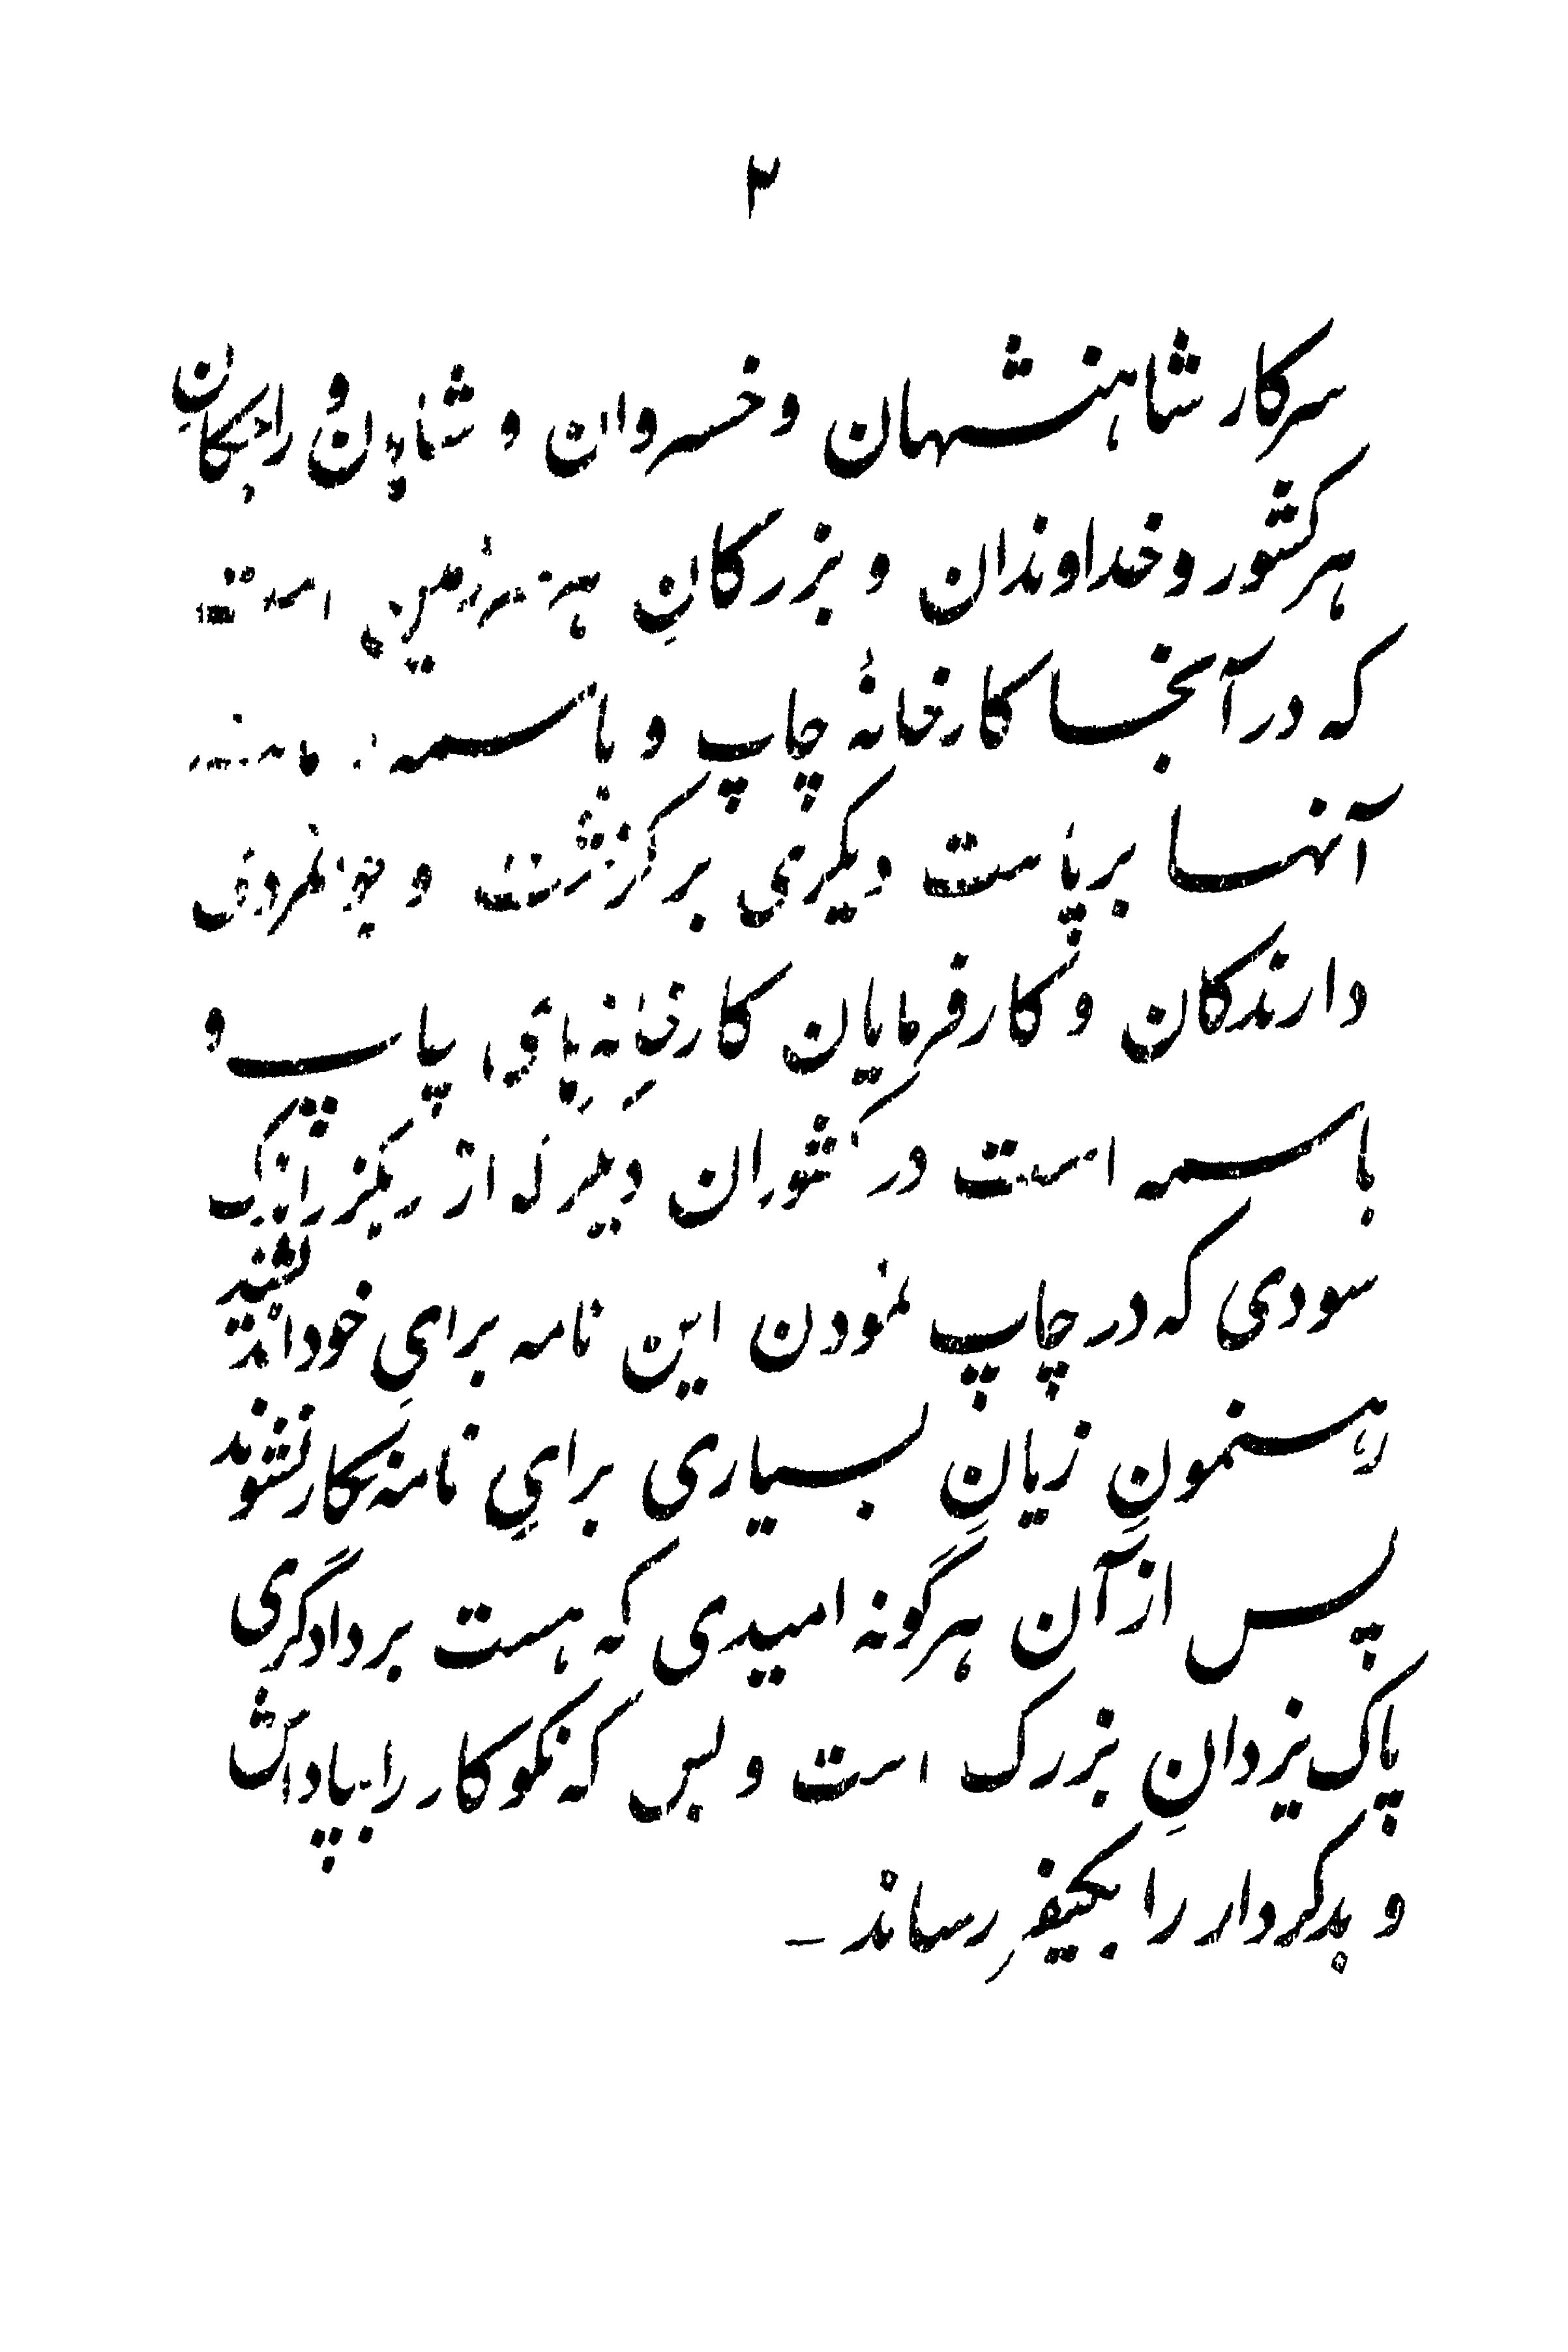 ۲
سرکار شاهنشهان و خسروان و شاهان و راجکانِ
هر کشور و خداوندان و بزرکانِ هر سرزمین است
که در آنجا کارخانهٔ چاپ و باسمه
آنها برپاست دیکری بر کزشت و جوانمردی
دارندکان و کارفرمایان کارخانه‌های چاپ و
باسمه است در کشوران دیکر که از رهکزر اندک
سودی که در چاپ نمودن این نامه برایِ خود اندیشند
رهنمونِ زیانِ بسیاری برایِ نامه‌نکار نشوند
پس از آن هرگونه امیدی که هست بر دادگری
پاک یزدانِ بزرک است و بس که نکوکار را بپاداش
و بدکردار را بکیفر رساند ـ